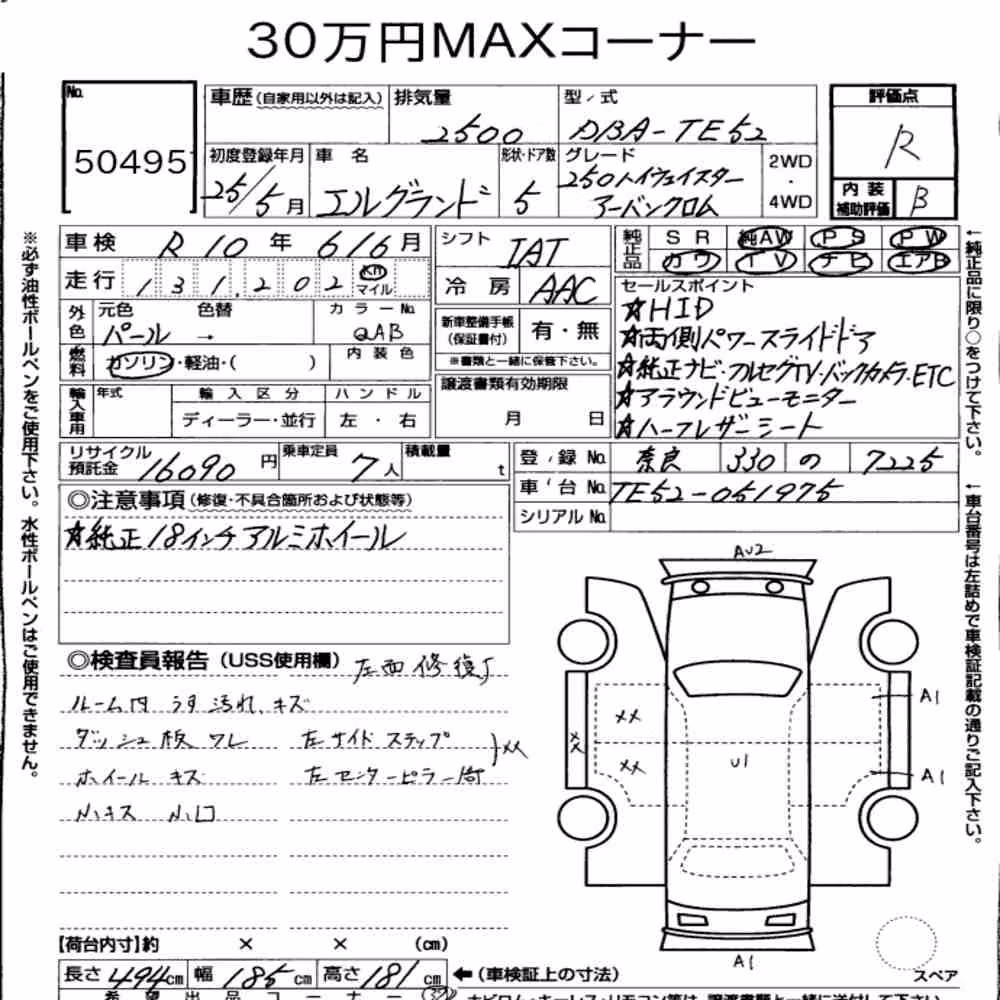 30万円MAXコーナー
No. 50495
車歴(自家用以外は記入) 排気量 2500 型式 DBA-TE52
評価点 R
内装補助評価 B
初度登録年月 25/5月 車名 エルグランド 形状・ドア数 5 グレード 250ハイウェイスター アーバンクロム 2WD・4WD
車検 R10年6/6月 シフト IAT
純正品 SR 純AW PS PW
カワ TV ナビ エアB
走行 131,202 Km マイル 冷房 AAC
セールスポイント
☆HID
☆両側パワースライドドア
☆純正ナビ・フルセグTV・バックカメラ・ETC
☆アラウンドビューモニター
☆ハーフレザーシート
外色 元色 パール → 色替 カラーNo. QAB
新車整備手帳(保証書付) 有・無
※書類と一緒に保管下さい。
燃料 ガソリン・軽油・( ) 内装色
譲渡書類有効期限 月 日
輸入車用 年式 輸入区分 ディーラー・並行 ハンドル 左・右
リサイクル預託金 16090円 乗車定員 7人 積載量 t
登録No. 奈良 330 の 7225
車台No. TE52-051975
シリアルNo.
◎注意事項(修復・不具合箇所および状態等)
☆純正18インチアルミホイール
◎検査員報告(USS使用欄) 左面修復S
ルーム内 うす汚れ、キズ
ダッシュ板ワレ 左サイドステップ
ホイールキズ 左センターピラー ××
小キズ 小凹
AU2
A1
A1
××
××
××
U1
A1
スペア
【荷台内寸】約 × × (cm)
長さ 494cm 幅 185cm 高さ 181cm ←(車検証上の寸法)
希望出品コーナー
※必ず油性ボールペンをご使用下さい。水性ボールペンはご使用できません。
←純正品に限り○をつけて下さい。
←車台番号は左詰めで車検証記載の通りご記入下さい。